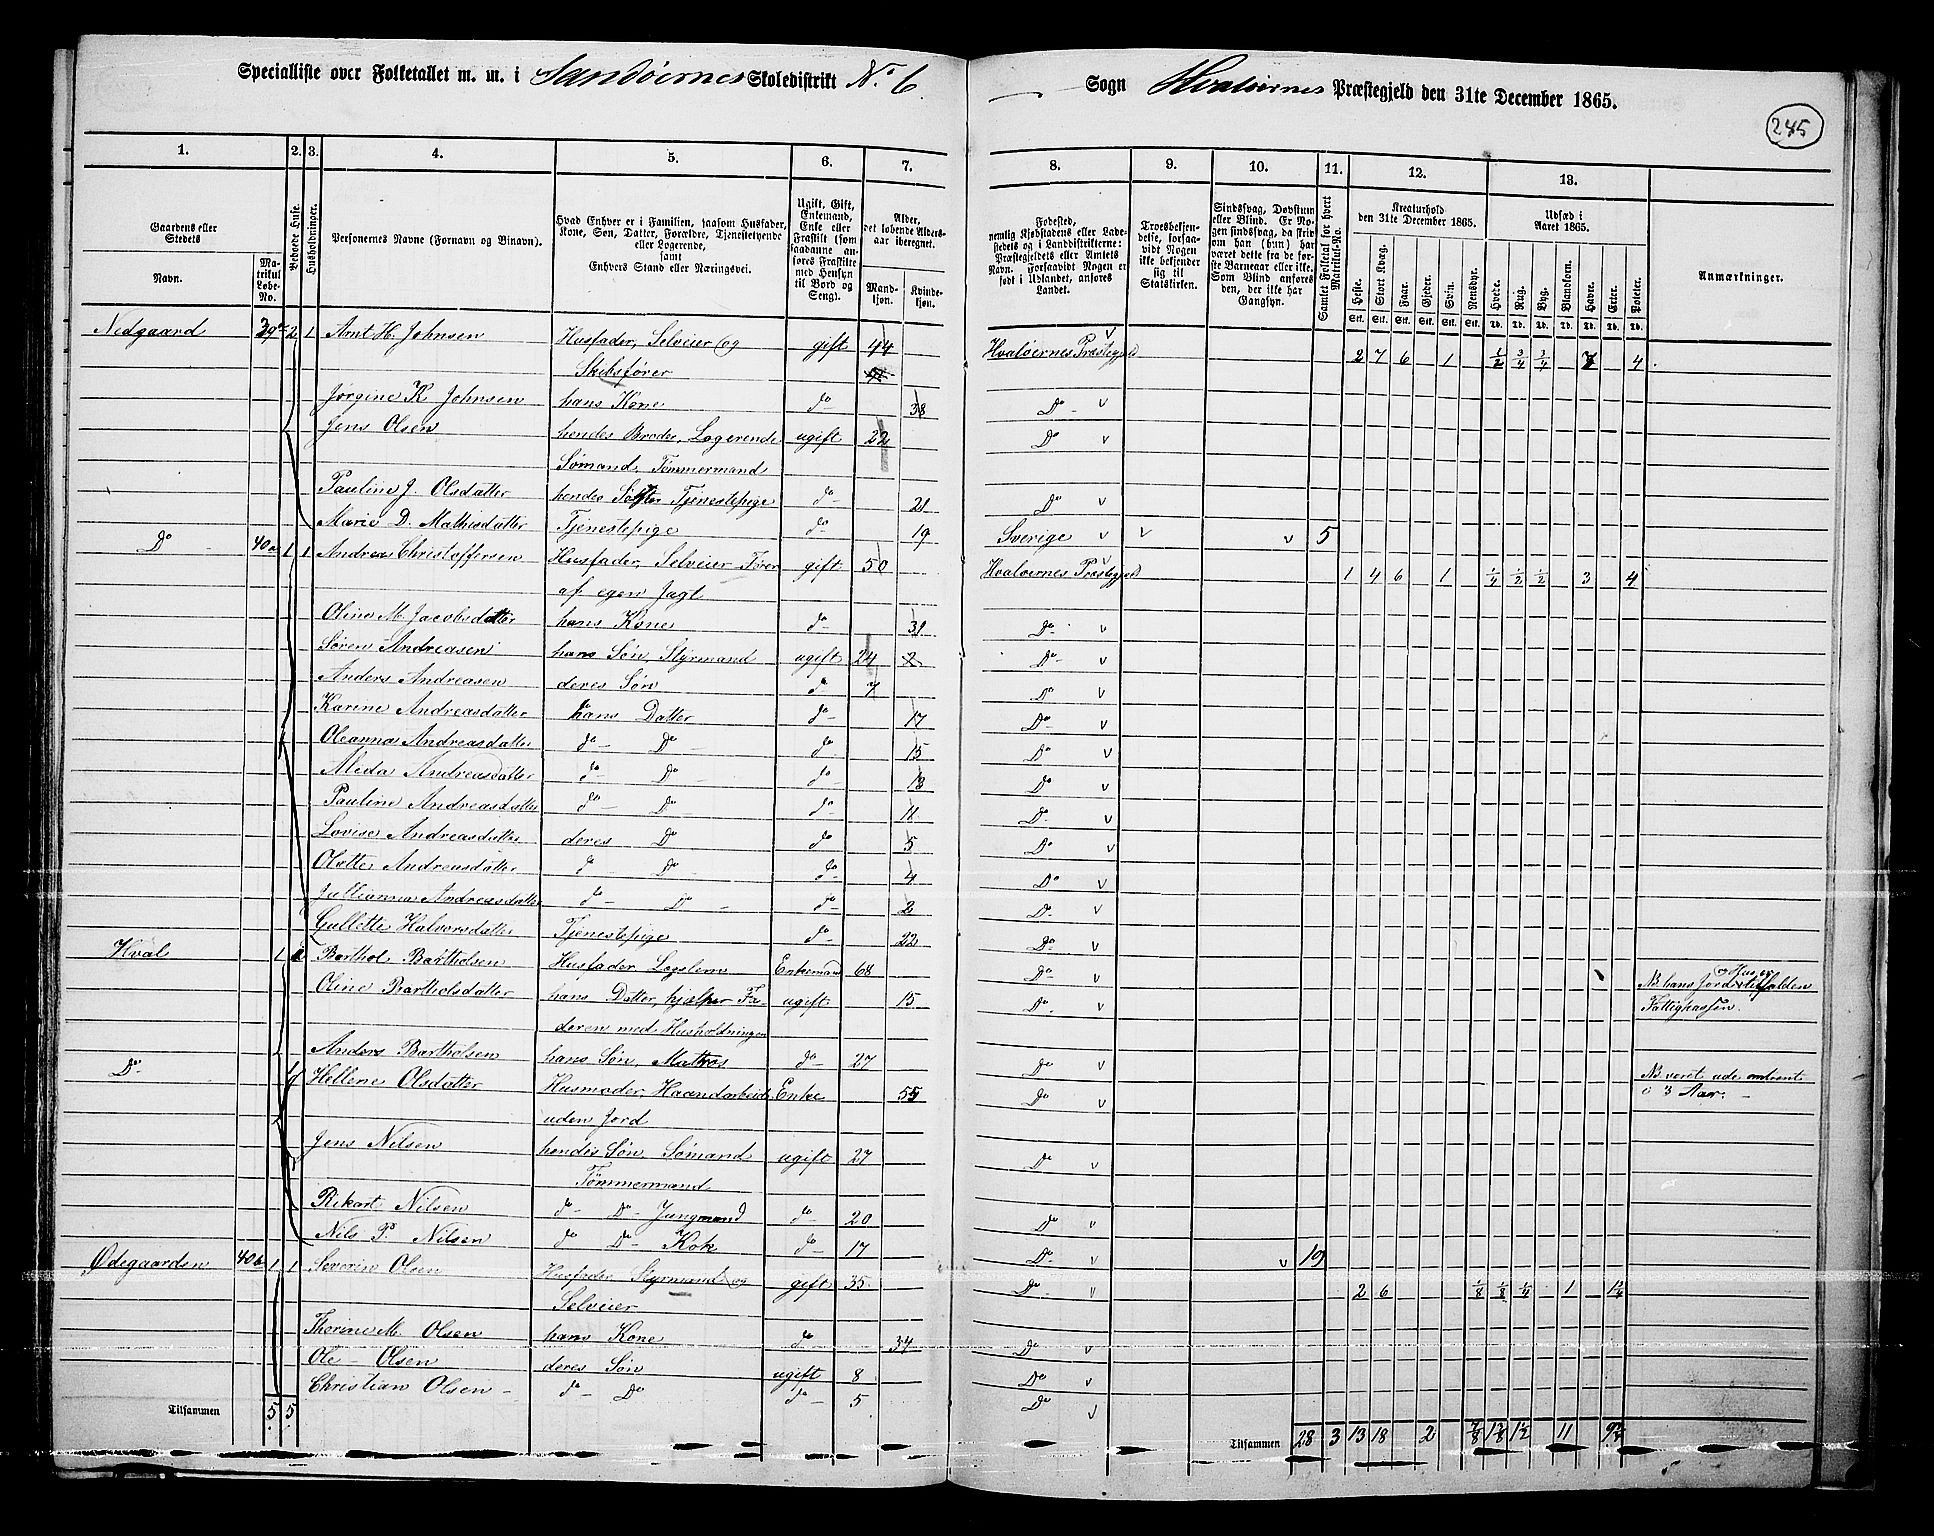 Specialliste over Folketallet m. m. i Sandøernes Skoledistrikt No 6
Sogn Hvaløernes Præstegjeld den 31te December 1865.
245
1. 2. 3. 4. 5. 6. 7. 8. 9. 10. 11. 12. 13.
Gaardens eller Stedets Navn.
Matrikul Løbe-No.
Beboede Huse.
Husholdninger.
Personernes Navne (Fornavn og Binavn).
Hvad Enhver er i Familien, saasom Husfader, Kone, Søn, Datter, Forældre, Tjenestetyende eller Logerende, samt Enhvers Stand eller Næringsvei.
Ugift, Gift, Enkemand, Enke eller Fraskilt (som saadanne anføres Fraskilte med Hensyn til Bord og Seng).
Alder, det løbende Aldersaar iberegnet.
Mandkjøn. Kvindekjøn.
Fødested, nemlig Kjøbstadens eller Ladestedets og i Landdistrikterne: Præstegjeldets eller Amtets Navn. Forsaavidt Nogen er født i Udlandet, anføres Landet.
Troesbekjendelse, forsaavidt Nogen ikke bekjender sig til Statskirken.
Sindssvag, Døvstum eller Blind. Er Nogen sindssvag, da skriv om han (hun) har været dette fra de første Barneaar eller ikke. Som Blind anføres den, der ikke har Gangsyn.
Samlet Folketal for hvert Matrikul-No.
Kreaturhold den 31te December 1865.
Heste. Stort Kvæg. Faar. Gjeder. Svin. Rensdyr.
Udsæd i Aaret 1865.
Hvede. Rug. Byg. Blandkorn. Havre. Erter. Poteter.
Anmærkninger.
Nedgaard 39 2 1 Arnt H. Johnsen Husfader, Selveier og gift 44 Hvaløernes Præstegjeld 2 7 6 1 1/2 3/4 3/4 7 4
Skibsfører
Jørgine K Johnsen hans Kone do 38 Do
Jens Olsen hendes Broder, Logerende ugift 22 Do
Sømand, Tømmermand
Pauline J. Olsdatter hendes Søster Tjenestepige do 21 Do
Marie D. Mathisdatter Tjenestepige do 19 Sverige 5
Do 40a 1 1 Andreas Christoffersen Husfader, Selveier Fører gift 50 Hvaløernes Præstegjeld 1 4 6 1 1/4 1/2 1/2 3 4
af egen Jagt
Oline M. Jacobsdatter hans Kone do 31 Do
Søren Andreasen hans Søn, Styrmand ugift 24 Do
Anders Andreasen deres Søn do 7 Do
Karine Andreasdatter hans Datter do 17 Do
Oleanna Andreasdatter do Do do 15 Do
Alida Andreasdatter do Do do 13 Do
Pauline Andreasdatter do Do do 11 Do
Lovise Andreasdatter deres Do do 5 Do
Olette Andreasdatter do Do do 4 Do
Jullianna Andreasdatter do Do do 2 Do
Gullette Halvorsdatter Tjenestepige do 22 Do
Hval 1 Barthol Bartholsen Husfader Lægslem Enkemand 68 Do NB. hans Jord og Hus er tilfalden
Oline Bartholsdatter hans Datter, hjælper Fa- ugift 15 Do Fattigkassen.
deren med Husholdningen
Anders Bartholsen hans Søn, Matros do 27 Do NB. veret ude omtrent
Do Hellene Olsdatter Husmoder, Haandarbeide Enke 55 Do i 3 Aar.
uden Jord
Jens Nilsen hendes Søn, Sømand ugift 27 Do
Tømmermand
Rikart Nilsen do Do Jungmand do 20 Do
Nils P. Nilsen do Do Kok do 17 Do 19
Ødegaarden 40b 1 1 Severin Olsen Husfader Styrmand og gift 35 Do 2 6 1/8 1/8 1/4 1
Selveier
Thorine M. Olsen hans Kone do 34 Do
Ole Olsen deres Søn ugift 8 Do
Christian Olsen do Do do 5 Do
Tilsammen 5 5
Tilsammen 28 3 13 18 2 7/8 1 3/8 1 1/2 11